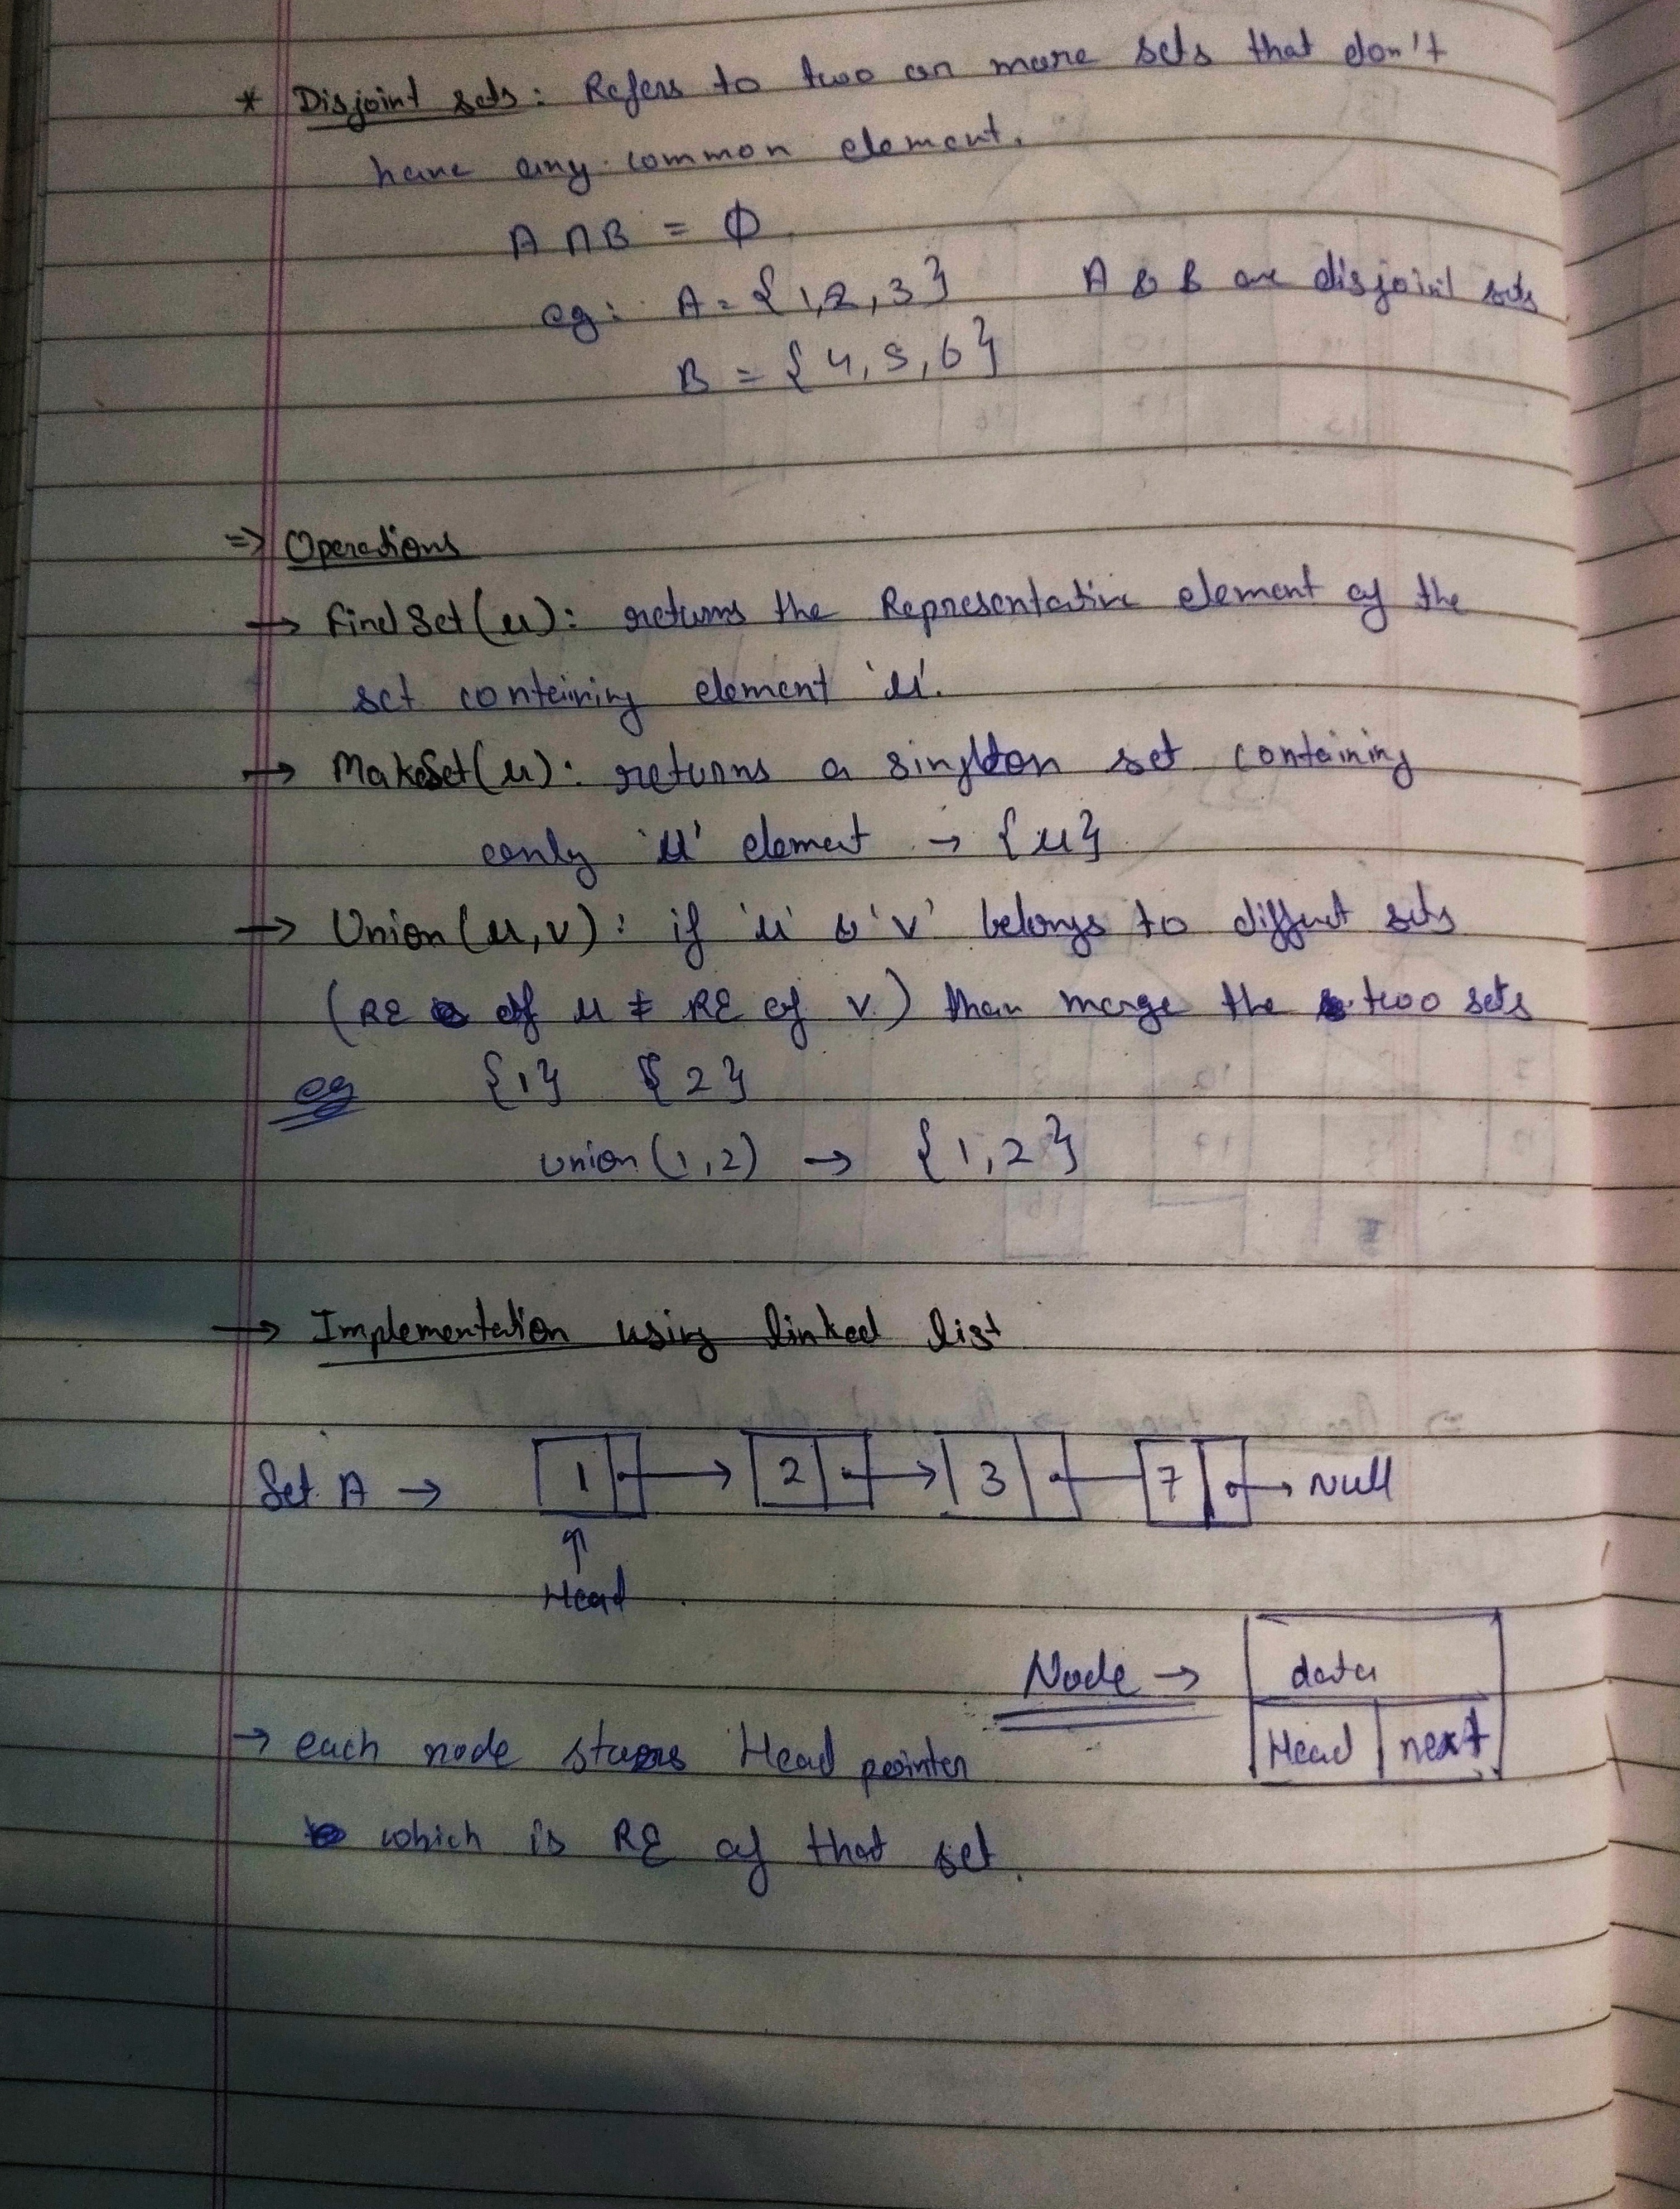 * Disjoint sets : Refers to two or more sets that don't
have any common element.
A ∩ B = ϕ
eg: A = {1,2,3} A & B are disjoint sets
B = {4,5,6}
=> Operations
→ FindSet(u): returns the Representative element of the
set containing element 'u'.
→ MakeSet(u): returns a singleton set containing
only 'u' element → {u}
→ Union(u,v): if 'u' & 'v' belongs to diffent sets
(RE of u ≠ RE of v) than merge the two sets
eg {1} {2}
union(1,2) → {1,2}
→ Implementation using linked list
Set A → 1 → 2 → 3 — 7 → Null
↑
Head
Node → data
Head next
→ each node stores Head pointer
which is RE of that set.